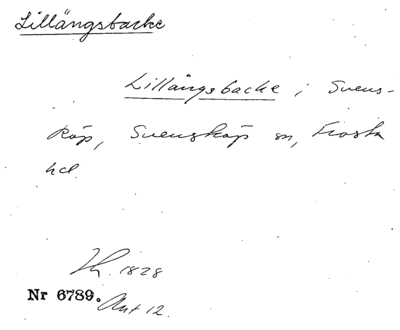 Lillängsbacke
Lillängsbacke i Svens-
köp, Svensköps sn, Frosta
hd.
1828
Nr 6789. Akt 12.